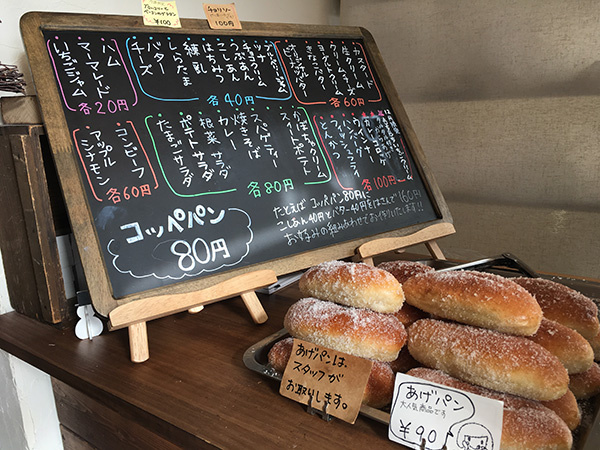 チョリソー
100円
¥100
ハム
マーマレード
いちごジャム
各20円
ツナ
チョコクリーム
つぶあん
こしあん
はちみつ
練乳
しらたま
バター
チーズ
各40円
カスタード
生クリーム
ヨーグルトクリーム
きなこバター
各60円
コンビーフ
アップル
シナモン
各60円
かぼちゃクリーム
スイートポテト
スパゲティー
焼きそば
カレー
根菜サラダ
ポテトサラダ
たまごサラダ
各80円
フィッシュフライ
とんかつ
各100円
コッペパン
80円
たとえば コッペパン80円に
こしあん40円とバター40円をはさんで160円
お好みの組みあわせでお作りいたします!!
あげパンは、
スタッフが
お取りします。
あげパン
大人気商品です
¥90